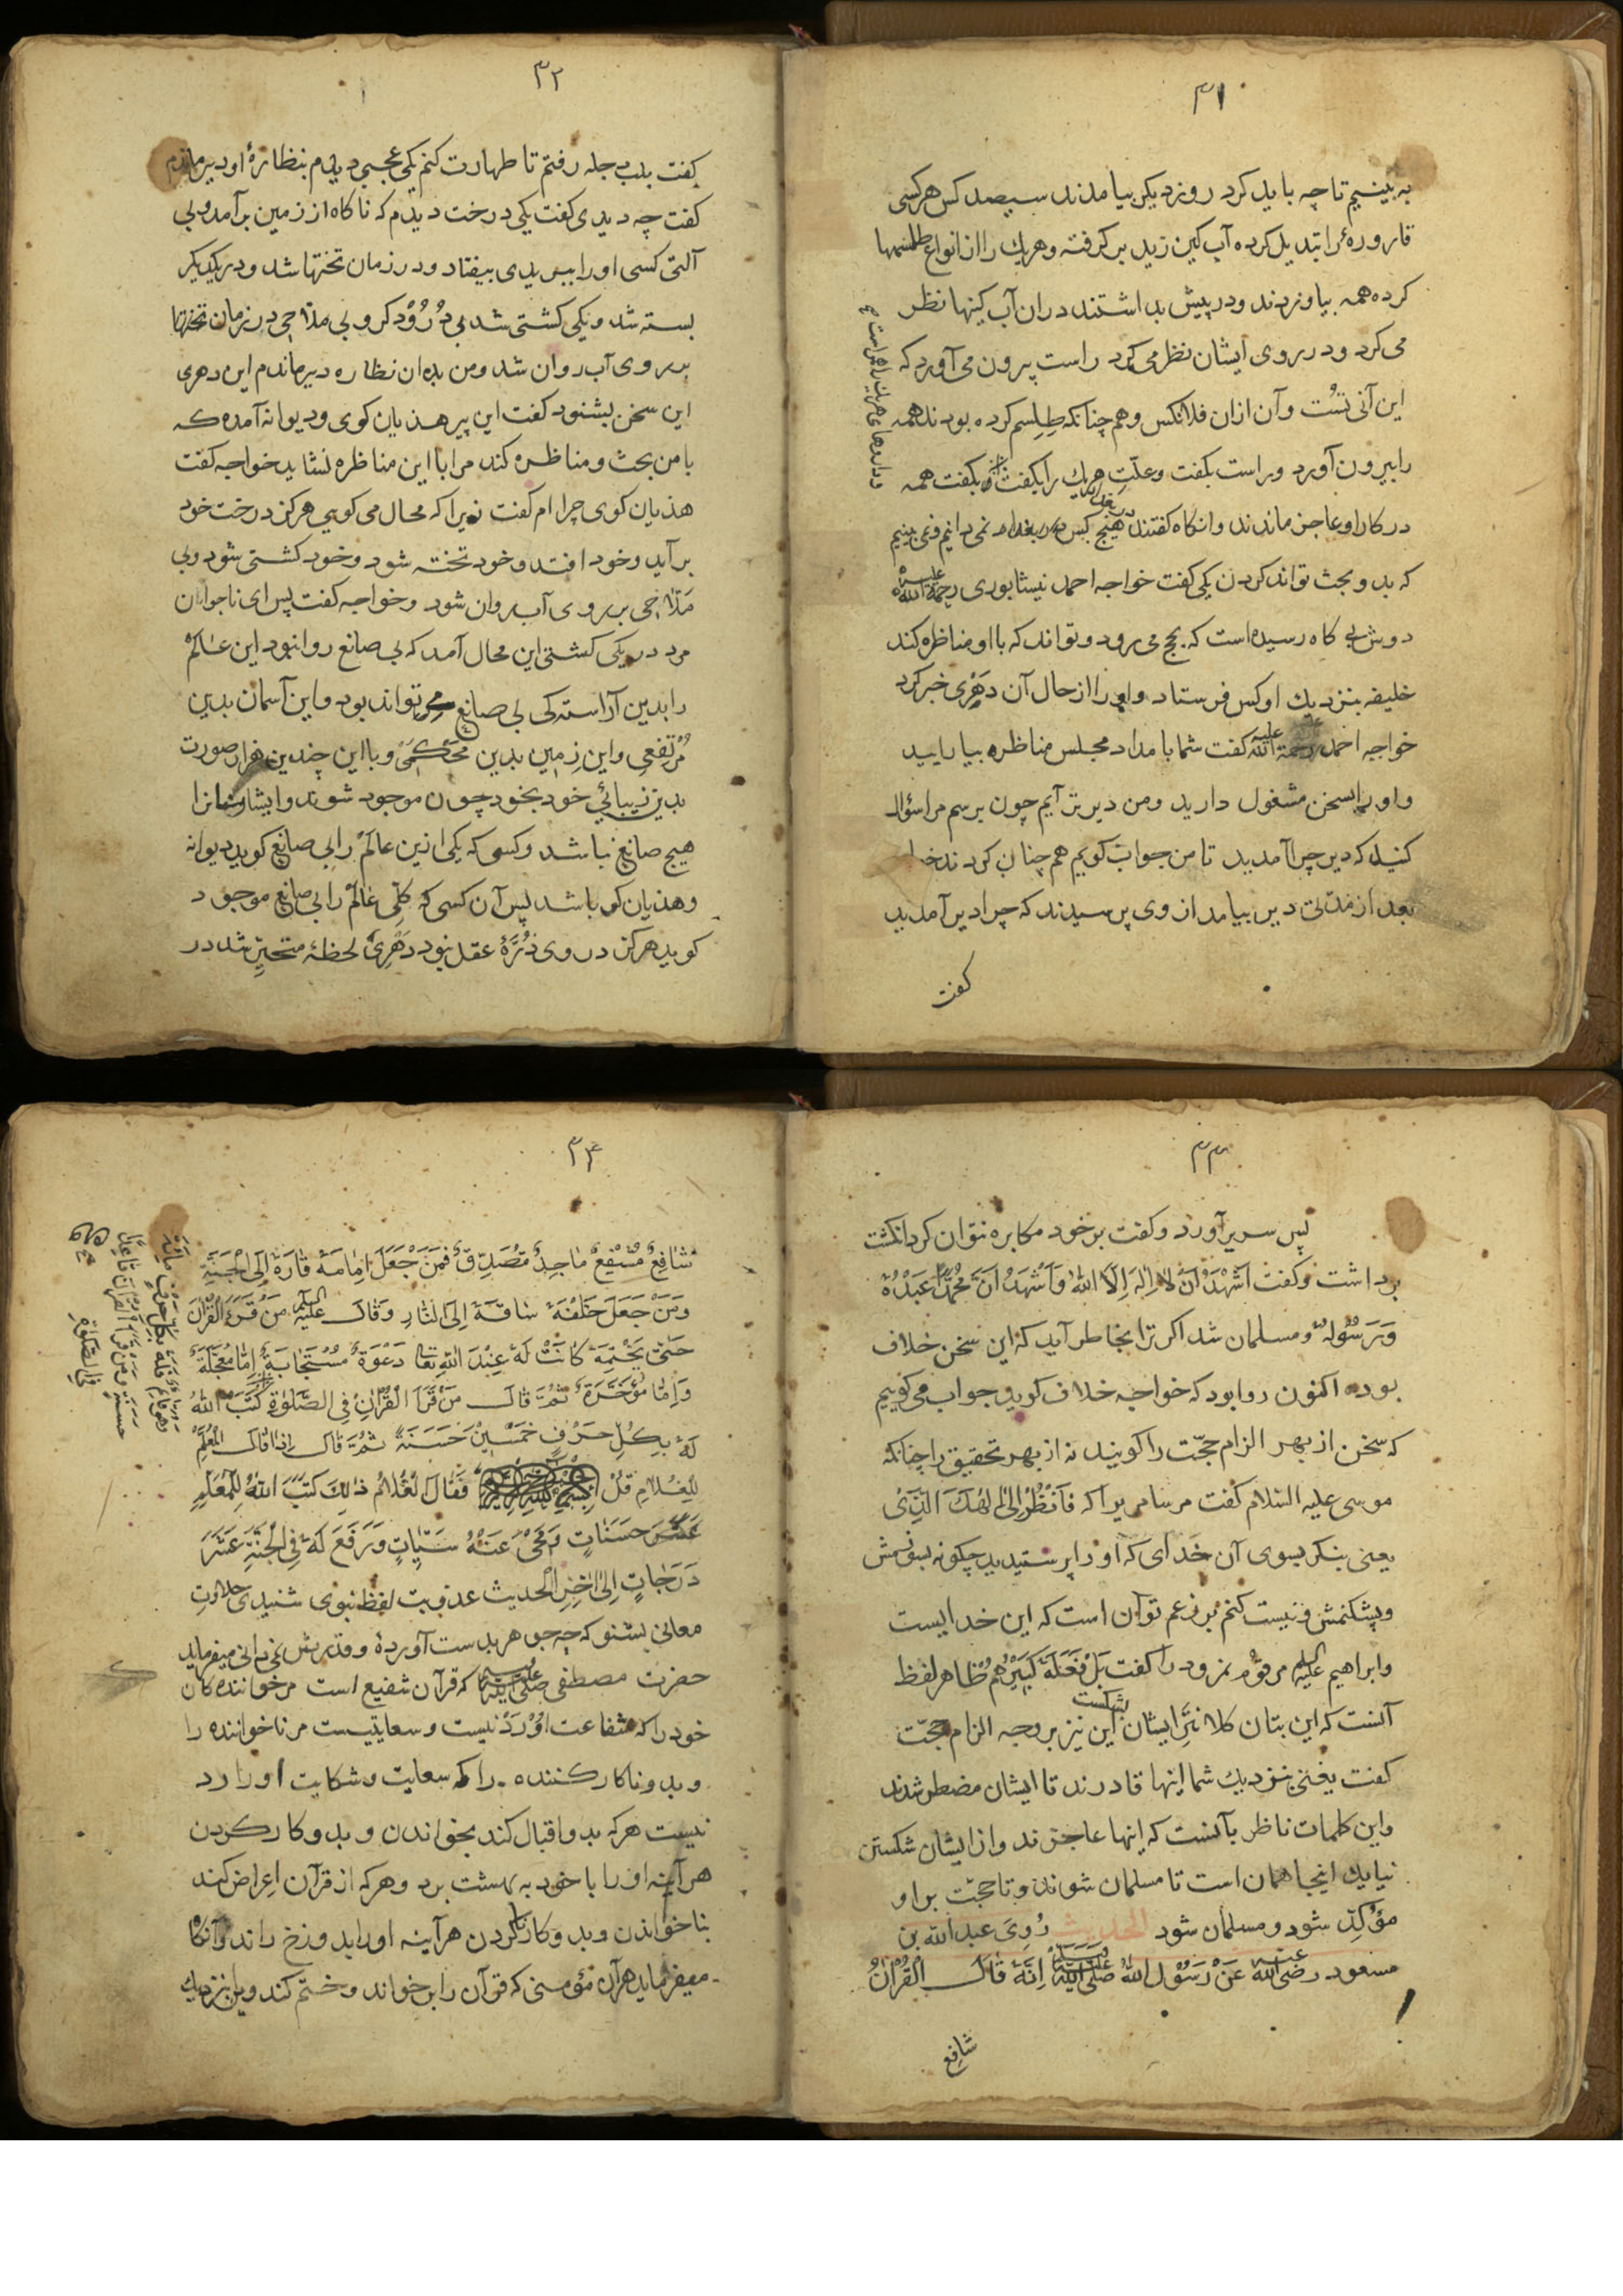 ۳۱
به بینیم تا چه باید کرد روز دیکر بیامدند سیصد کس هر کسی
قارورهٔ را تبدیل کرده آب کین زید بر کرفته وهریك را از انواع طلسمها
کرده همه بیاوردند ودر پیش بداشتند دران آب کینها نظر
می کرد ودر روی ایشان نظر می کرد راست بیرون می آورد که
این آنِ تست وآن ازان فلانکس وهم چنانکه طِلِسم کرده بودند همه
را بیرون آورد وراست بکفت وعلّتِ هریك را بکفت بکفت همه
در کار او عاجز ماندند وانکاه کفتند هیچ کس در بغداد نمی دانیم ونمی بینیم
که بدو بحث تواند کردن یکی کفت خواجه احمد نیشابوری رحمة الله علیه
دوش بی کاه رسیده است که بحج می رود وتواند که با او مناظره کند
خلیفه بنزدیك او کس فرستاد واورا از حال آن دَهْری خبر کرد
خواجه احمد رحمة الله علیه کفت شما بامداد مجلس مناظره بیارایید
واورا بسخن مشغول دارید ومن دیرتر آیم چون برسم مرا سؤال
کنید که دیر چرا آمدید تا من جواب کویم هم چنان کردند
بعد از مدّتی دیر بیامد از وی پرسیدند که چرا دیر آمدید
کفت
۳۲
کفت بلب جله رفتم تا طهارت کنم یکی عجبی دیدم بنظارهٔ او دیر ماندم
کفت چه دیدی کفت یکی درخت دیدم که ناکاه از زمین بر آمد وبی
آلتی کسی اورا ببریدی بیفتاد ودر زمان تختها شد ودر یکدیکر
بسته شد ویکی کشتی شد بی دُرُوْدکر وبی ملّاحی در زمان تختها
بر روی آب روان شد ومن بدان نظاره دیر ماندم این دهری
این سخن بشنود کفت این پیر هذیان کوی ودیوانه آمده که
با من بحث ومناظره کند مرا با این مناظره نشاید خواجه کفت
هذیان کوی چرا ام کفت زیرا که محال می کویی هرکز درخت خود
بر آید وخود افتد وخود تخته شود وخود کشتی شود وبی
مَلّاحی بر روی آب روان شود وخواجه کفت پس ای ناجوان
مرد در یکی کشتی این محال آمد که بی صانع روا نبود این عالَم
را بدین آراستکی بی صانع تواند بود واین آسمان بدین
مُرْتفعی واین زمین بدین محکَمی وبا این چندین هزار صورت
بدین زیبائی خود بخود چون موجود شوند وایشان را
هیچ صانع نباشد وکسی که یکی ازین عالَم را بی صانع کوید دیوانه
وهذیان کو باشد پس آن کسی که کلّی عالَم را بی صانع موجود
کوید هرکز در وی ذرّهٔ عقل نبود دَهْری لحظهٔ متحیّر شد در
۳۳
پس سر بر آورد وکفت بر خود مکابره نتوان کرد انکشت
برداشت وکفت اَشْهَدُ اَنْ لا اِلٰهَ اِلَّا اللهُ وَاَشْهَدُ اَنَّ مُحَمَّدًا عَبْدُهُ
وَرَسُولُهُ ومسلمان شد اکر ترا بخاطر آید که این سخن خلاف
بوده اکنون روا بود که خواجه خلاف کوید جواب می کوییم
که سخن از بهر الزام حجّت را کویند نه از بهر تحقیق را چنانکه
موسی علیه السّلام کفت مر سامری را که فَاَنْظُرْ اِلٰی اِلٰهِكَ الَّذِیْ
یعنی بنکر بسوی آن خدای که اورا پرستیدید چکونه بسوزمش
وبشکنمش ونیست کنم بر زعم تو آن است که این خدایست
وابراهیم علیه السلام مر قوم نمرود را کفت بَلْ فَعَلَهُ كَبِيْرُهُمْ ظاهر لفظ
آنست که این بتان کلانترِ ایشان بشکست این نیز بر وجه الزام حجّت
کفت یعنی بنزدیك شما اینها قادرند تا ایشان مضطر شدند
واین کلمات ناظر بآنست که اینها عاجزند واز ایشان شکستن
نیاید اینجا همان است تا مسلمان شوند وتا حجّت بر او
مؤکّد شود ومسلمان شود الحدیث رُوِیَ عبد الله بن
مسعود رضی الله عنه عَنْ رَسُوْلِ اللهِ صلّی الله علیه وسلم اِنَّهُ قَالَ الْقُرْاٰنُ
شافع
۳۴
شَافِعٌ مُشَفَّعٌ مَاجِدٌ مُصَدَّقٌ فَمَنْ جَعَلَ اِمَامَهُ قَادَهُ اِلَی الْجَنَّةِ
وَمَنْ جَعَلَ خَلْفَهُ سَاقَهُ اِلَی النَّارِ وَقَالَ علیه السلام مَنْ قَرَءَ الْقُرْاٰنَ
حَتّٰی یَخْتِمَهُ کَانَتْ لَهُ عِنْدَ اللهِ تَعَا دَعْوَةٌ مُسْتَجَابَةٌ اِمَّا مُعَجَّلَةً
وَاِمَّا مُؤَخَّرَةً ثُمَّ قَالَ مَنْ قَرَاَ الْقُرْاٰنَ فِی الصَّلٰوةِ کَتَبَ اللهُ
لَهُ بِکُلِّ حَرْفٍ خَمْسِیْنَ حَسَنَةً ثُمَّ قَالَ اِذَا قَالَ الْمُعَلِّمُ
لِلْغُلَامِ قُلْ فَقَالَ الْغُلَامُ ذٰلِكَ کَتَبَ اللهُ لِلْمُعَلِّمِ
عَشَرَ حَسَنَاتٍ وَمَحٰی عَنْهُ سَیِّاٰتٍ وَرَفَعَ لَهُ فِی الْجَنَّةِ عَشَرَ
دَرَجَاتٍ اِلٰی اٰخِرِ الْحَدیث عذوبت لفظ نبوی شنیدی حلاوتِ
معانی بشنو که چه جوهر بدست آوردهٔ وقدرش نمی دانی میفرماید
حضرت مصطفی صلّی الله علیه که قرآن شفیع است مر خواننده کان
خود را که شفاعت اُوْ رَدْ نیست وسعایتیست مر ناخواننده را
وبدو ناکار کننده را که سعایت وشکایت او را رد
نیست هر که بدو اقبال کند بخواندن وبدو کار کردن
هر آینه اورا با خود به بهشت برد وهر که از قرآن اِعراض کند
بناخواندن وبدو کار ناکردن هر آینه اورا بدوزخ راند وآنکاه
میفرماید هر آن مؤمنی که قرآن را بر خواند وختم کند ویرا بنزدیك